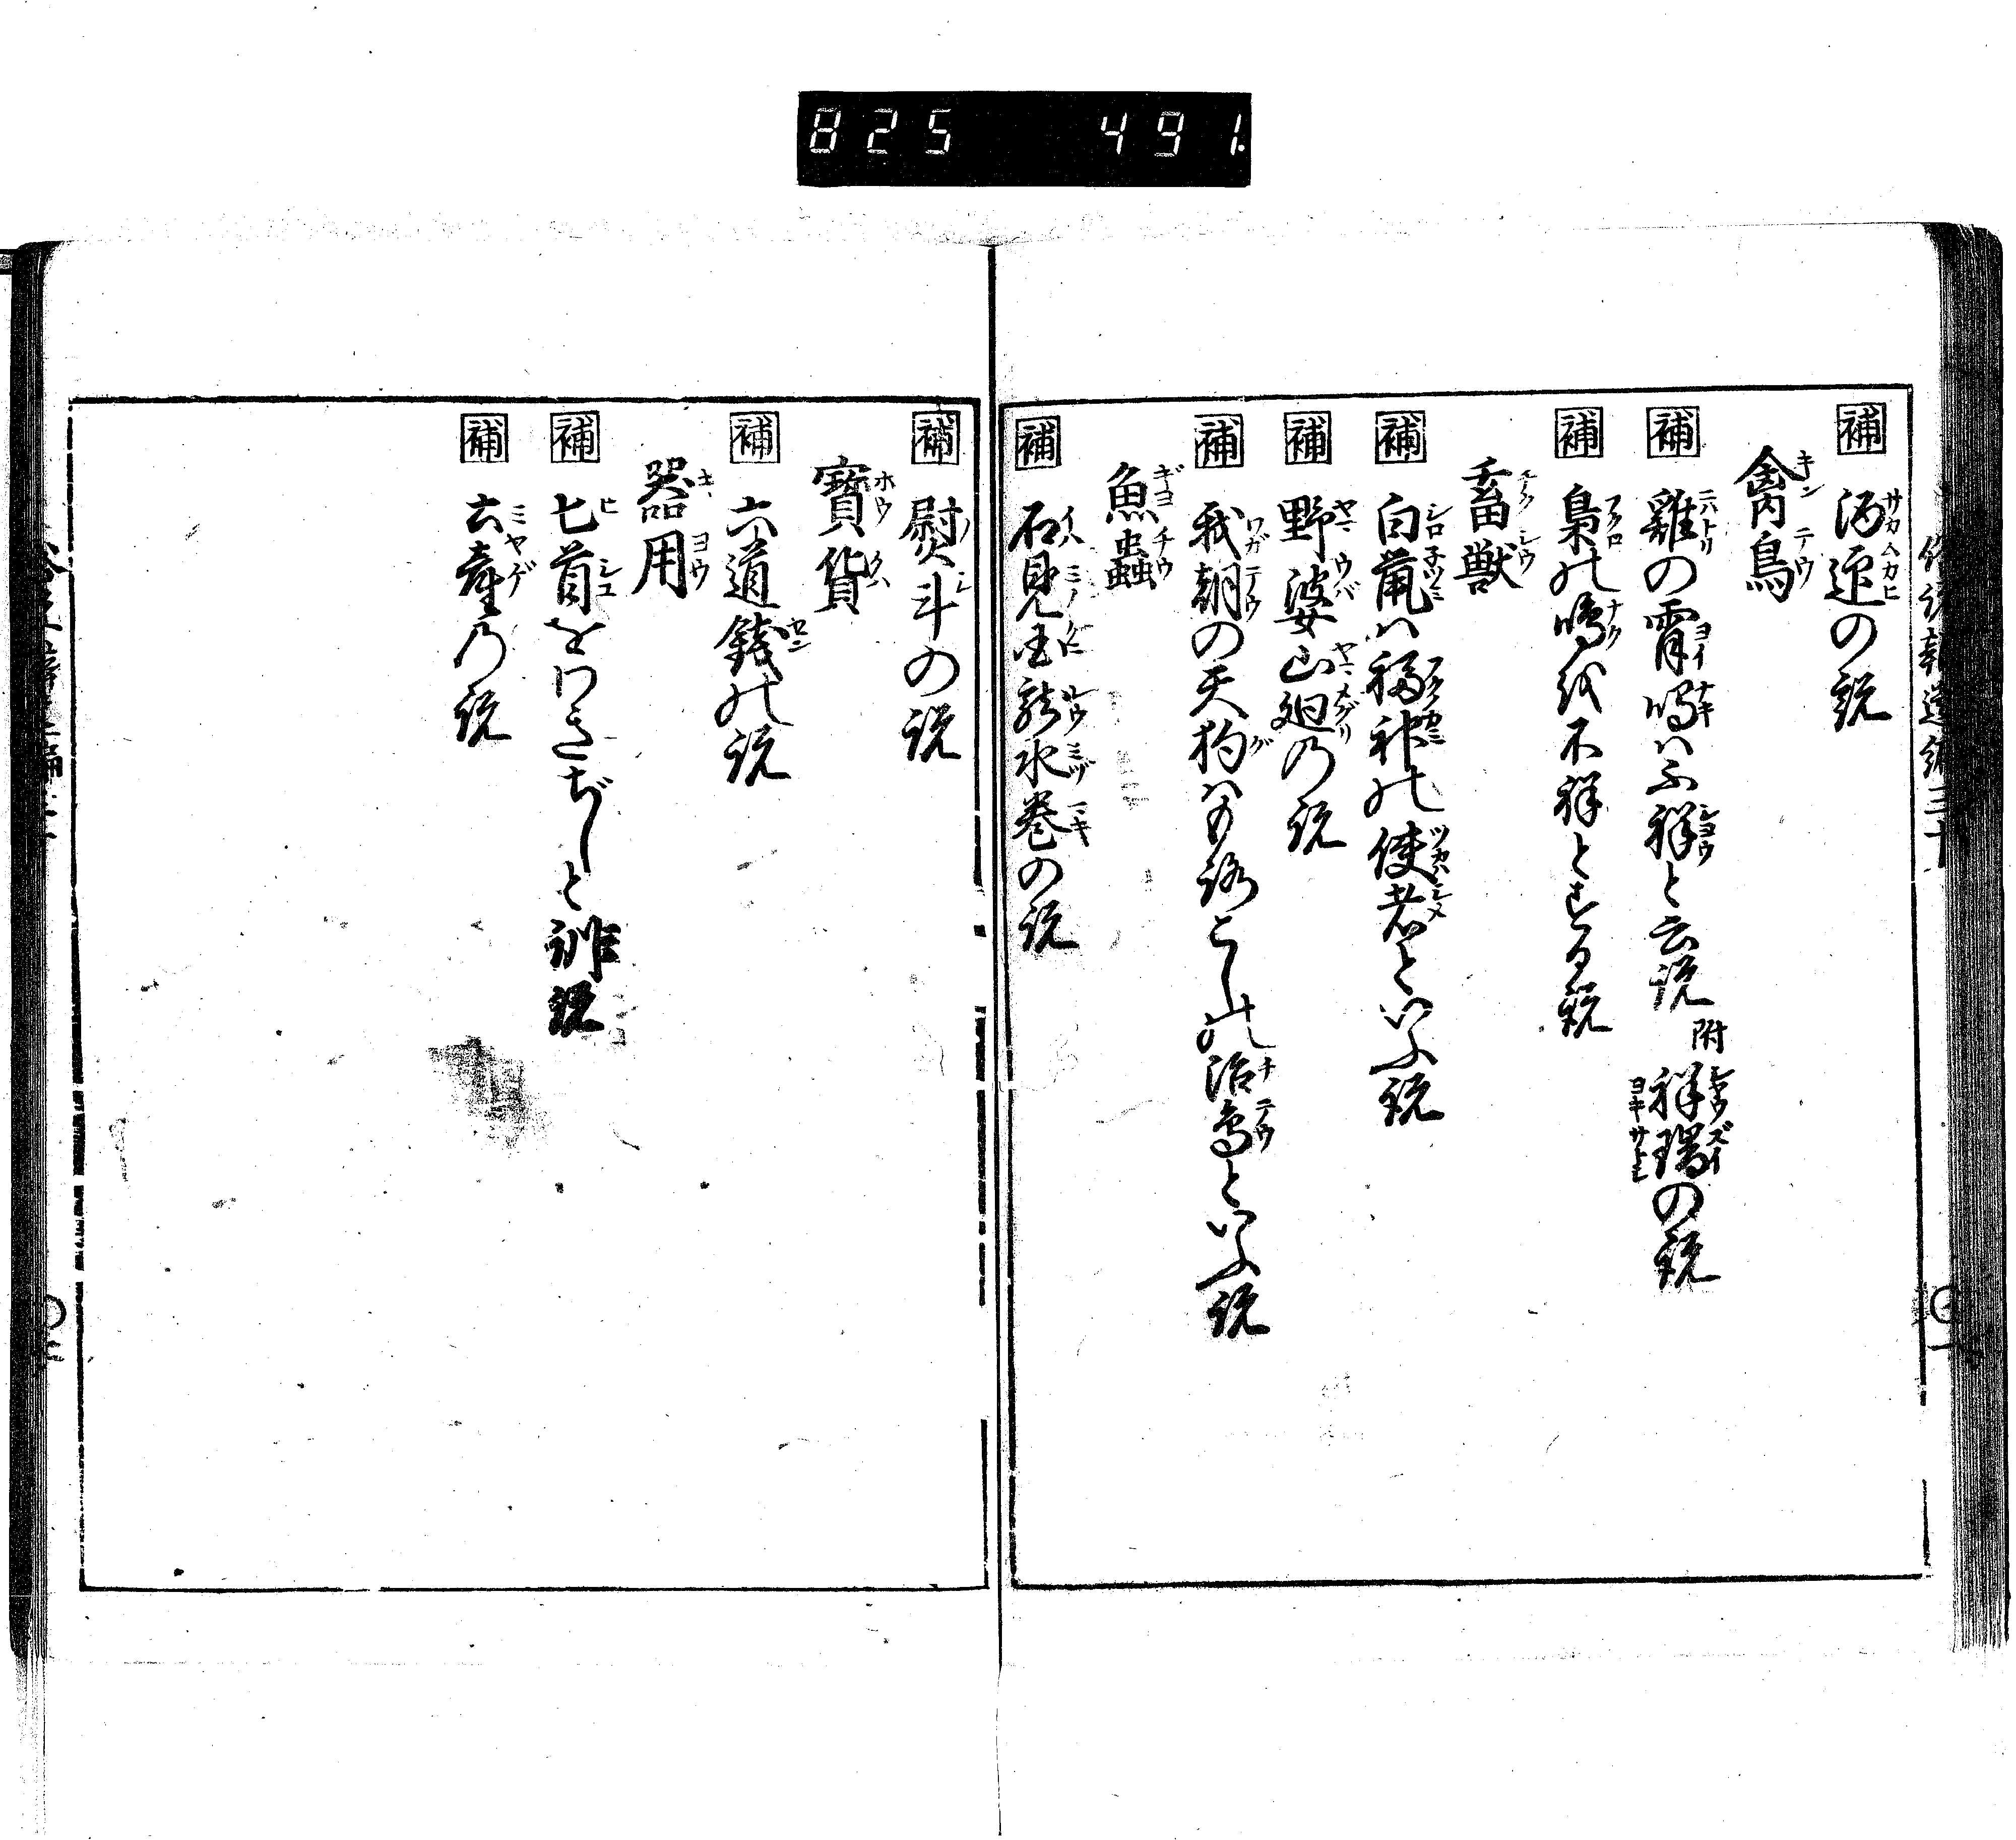 825 491.
補 酒迎の説
禽鳥
補 雞の宵鳴ハ不祥と云説 附 祥瑞の説
補 梟の鳴を不祥とする説
畜獣
補 白鼠ハ福神の使者といふ説
補 野婆山廻の説
補 我朝の天狗ハもろこしの治鳥といふ説
魚蟲
補 石見国龍水巻の説
補 熨斗の説
寶貨
補 六道銭の説
器用
補 匕首をわきざしと訓説
補 土産の説